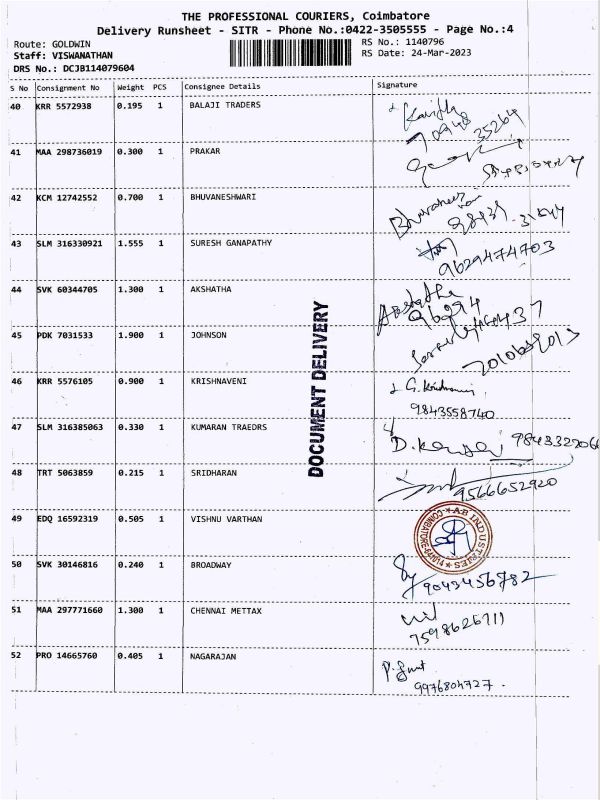 THE PROFESSIONAL COURIERS, Coimbatore
Delivery Runsheet - SITR - Phone No.:0422-3505555 - Page No.:4
Route: GOLDWIN
RS No.: 1140796
Staff: VISWANATHAN
RS Date: 24-Mar-2023
DRS No.: DCJB114079604
S No Consignment No Weight PCS Consignee Details Signature
40 KRR 5572938 0.195 1 BALAJI TRADERS
41 MAA 298736019 0.300 1 PRAKAR
42 KCM 12742552 0.700 1 BHUVANESHWARI
43 SLM 316330921 1.555 1 SURESH GANAPATHY
9629474703
44 SVK 60344705 1.300 1 AKSHATHA
45 PDK 7031533 1.900 1 JOHNSON
46 KRR 5576105 0.900 1 KRISHNAVENI
9843558740
47 SLM 316385063 0.330 1 KUMARAN TRAEDRS
48 TRT 5063859 0.215 1 SRIDHARAN
9566652920
49 EDQ 16592319 0.505 1 VISHNU VARTHAN
AB INDUSTRIES
50 SVK 30146816 0.240 1 BROADWAY
9043456782
51 MAA 297771660 1.300 1 CHENNAI METTAX
7598626711
52 PRO 14665760 0.405 1 NAGARAJAN
9976804727
DOCUMENT DELIVERY